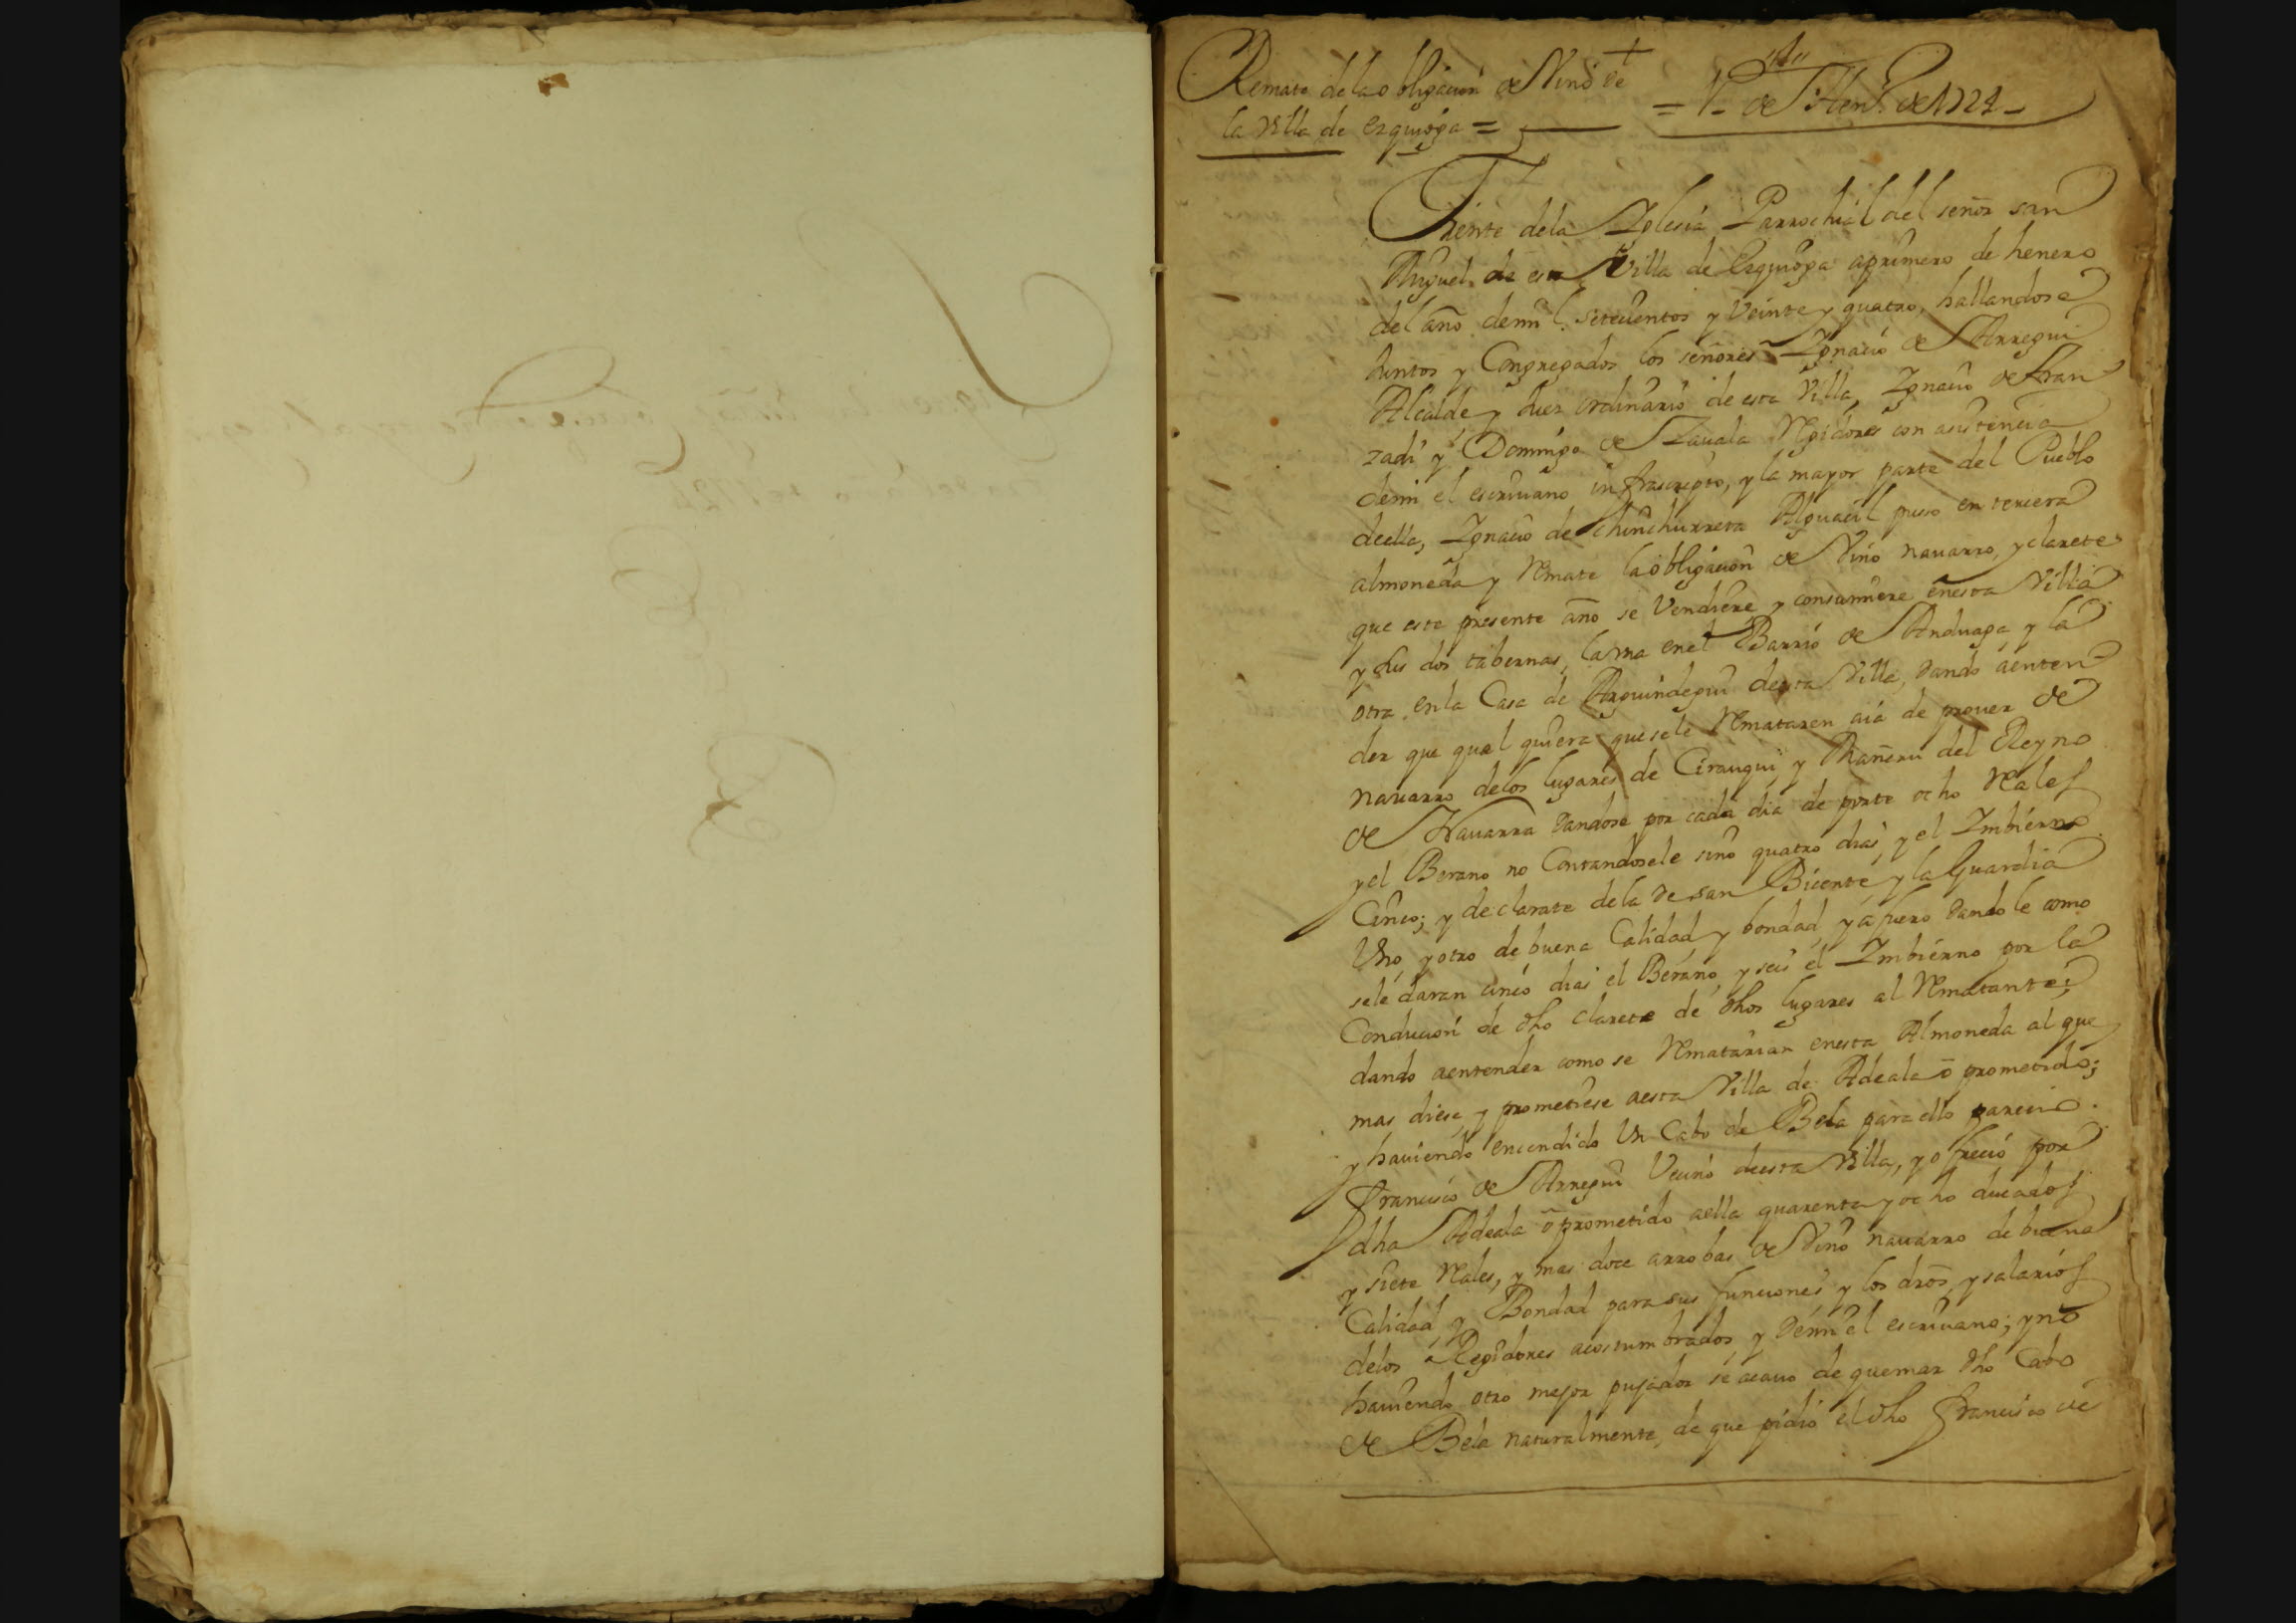 Remate de la obligacion de Vino de
la Villa de ezquioga =
= 1º de Hen.º de 1724 -
Frente dela Iglesia Parrochial del señor san
Miguel de esta Villa de Ezquioga aprimero de henero
del año demil setecientos y Veinte y quatro, hallandose
Juntos y Congregados los señores Ignacio de Arregui
Alcalde y Juez ordinario de esta Villa, Ignacio de Aran
zadi y Domingo de Zauala Regidores con asistencia
demi el escriuano infrascripto, y la mayor parte del Pueblo
deella, Ignacio de Chinchurreta Alguacil puso en tercera
almoneda y Remate la obligacion de Vino nauarro, y clarete
que este presente año se Vendiere y consumiere enesta Villa
y sus dos tabernas, la vna enel Barrio de Anduaga y la
otra enla Casa de Arguindegui deesta Villa, dando aenten
der que qual quiera quesele Rematare aia de prouer de
nauarro delos lugares de Cirauqui y Mañeru del Reyno
de Nauarra dandose por cada dia de porte ocho Rales
y el Berano no Contandosele sino quatro dias, y el Imbierno
Cinco; y de clarete dela de san Bicente y la Guardia
Uno y otro de buena Calidad y bondad, y a fuero dandole como
sele daran cinco dias el Berano, y seis el Imbierno por la
Conducion de dho clarete de dhos lugares al Rematante;
dando aentender como se Rematarian enesta Almoneda al que
mas diese, y prometiese aesta Villa de Adeala o prometido;
y hauiendo encendido Un Cabo de Bela para ello parecio
Francisco de Arregui Vecino deesta Villa, y ofrecio por
dha Adeala o prometido aella quarenta y ocho ducados
y siete Rales, y mas doce arrobas de Vino nauarro de buena
Calidad y Bondad para sus funciones y los dros y salarios
delos Regidores acostumbrados y demi el escriuano; y no
hauiendo otro mejor pujador se acauo de quemar dho Cabo
de Bela naturalmente, de que pidio el dho Francisco de